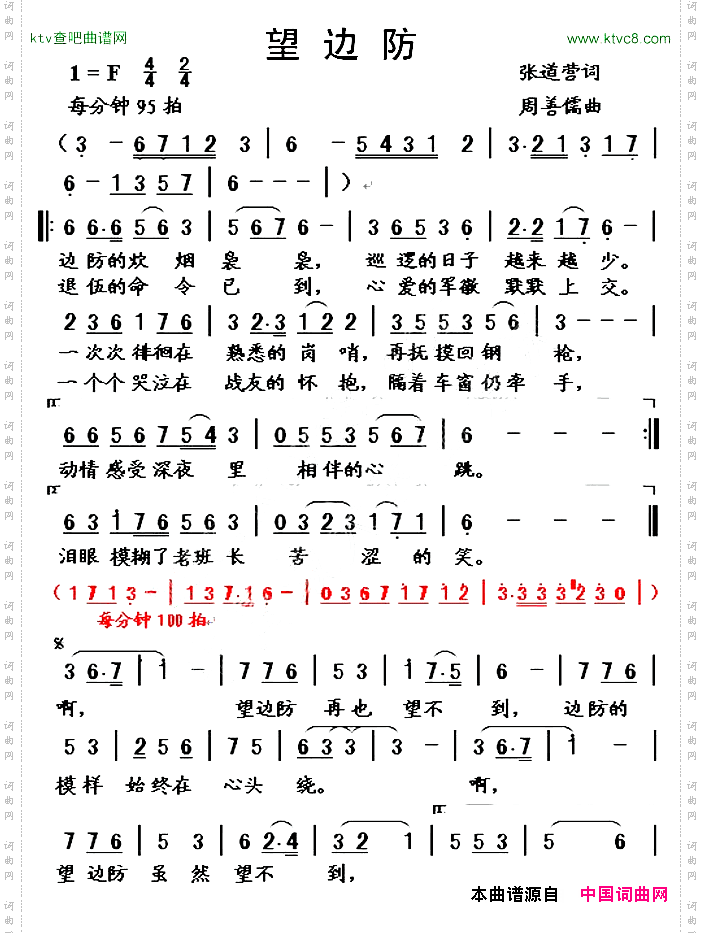 ktv查吧曲谱网
望边防
www.ktvc8.com
1=F 4/4 2/4
张道营词
每分钟95拍
周善儒曲
(3 - 6712 3 | 6 - 5431 2 | 3·213 17 |
6 - 1357 | 6 - - - | )
‖: 6 6·6 563 | 5676 - | 365 3 6 | 2·2 176 - |
边防的炊烟袅袅,巡逻的日子越来越少。
退伍的命令已到,心爱的军徽默默上交。
236 176 | 32·3 122 | 355356 | 3 - - - |
一次次徘徊在熟悉的岗哨,再抚摸回钢枪,
一个个哭泣在战友的怀抱,隔着车窗仍牵手,
1.
66567543 | 0553567 | 6 - - - :‖
动情感受深夜里相伴的心跳。
2.
631765 63 | 0323171 | 6 - - - ‖
泪眼模糊了老班长苦涩的笑。
(1713 - | 137·16 - | 03671712 | 3·3333230 | )
每分钟100拍
3 6·7 | 1 - | 776 | 53 | 1 7·5 | 6 - | 776 |
啊,望边防再也望不到,边防的
53 | 256 | 75 | 6333 | 3 - | 3 6·7 | 1 - |
模样始终在心头绕。啊,
1.
776 | 53 | 62·4 | 32 1 | 553 | 5 6
望边防虽然望不到,
本曲谱源自 中国词曲网
词曲网